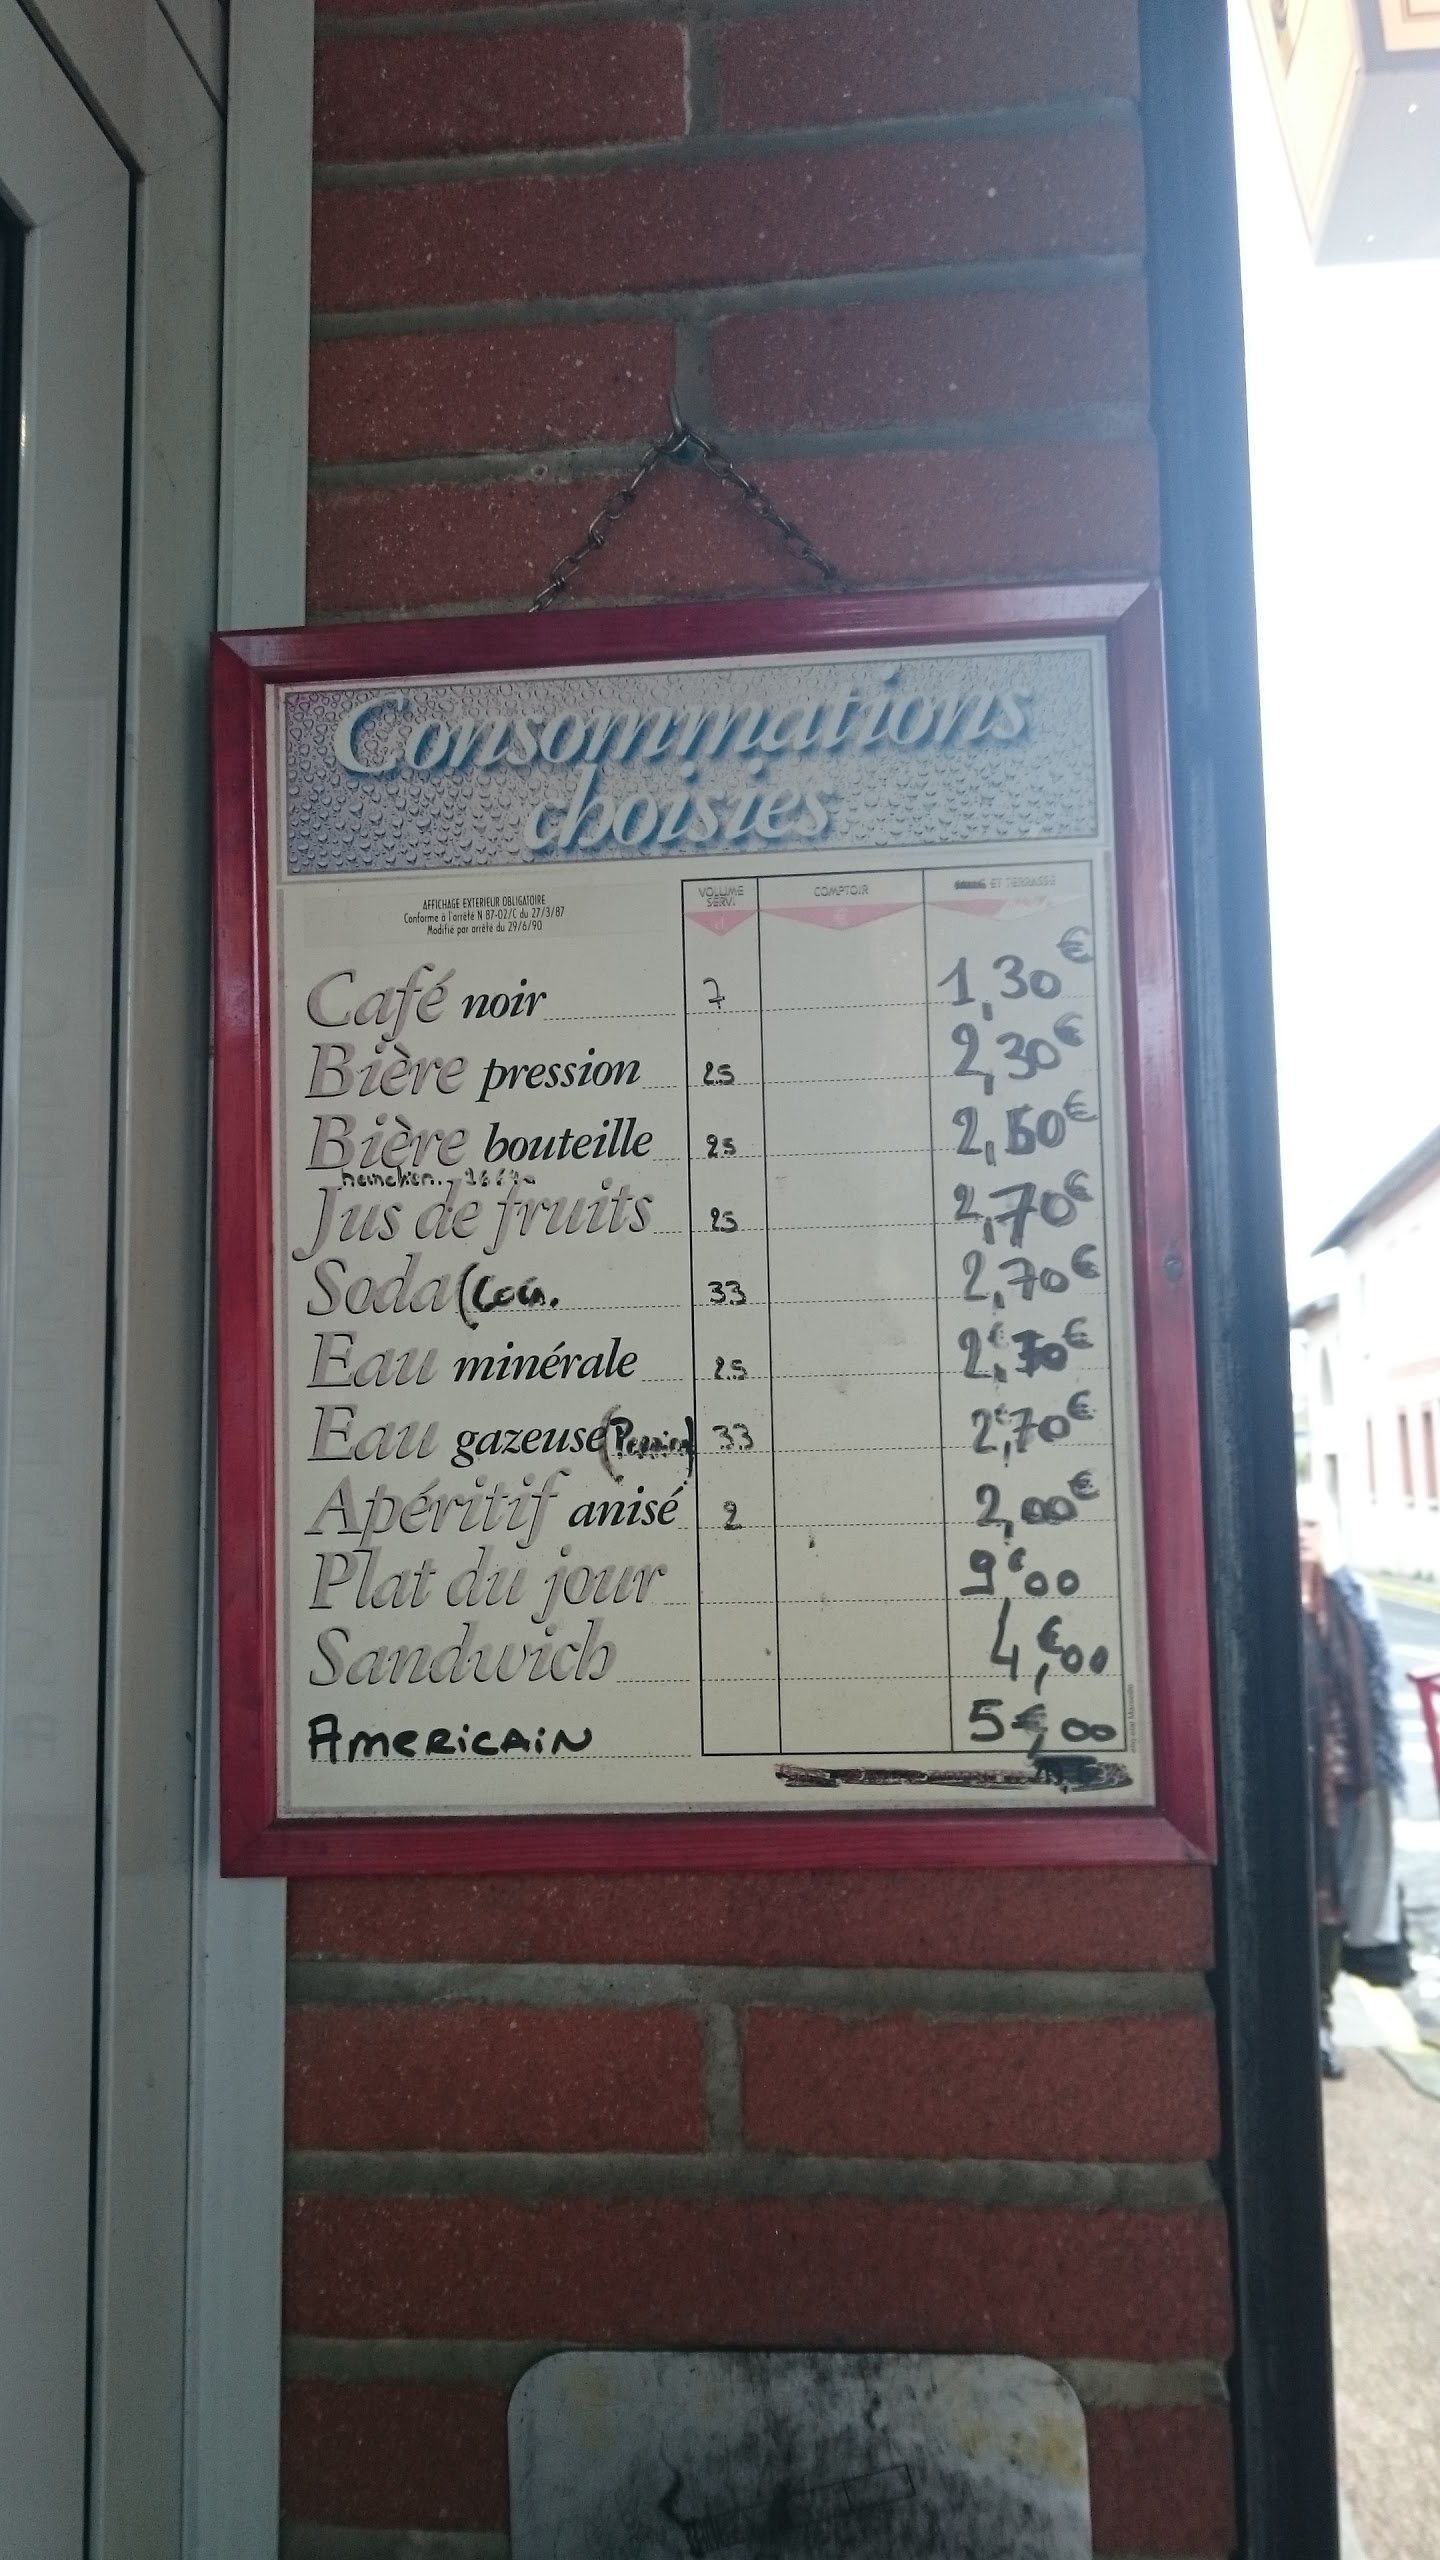 Consommations
choisies
AFFICHAGE EXTERIEUR OBLIGATOIRE
Conforme à l'arrêté N 87-02/C du 27/3/87
Modifié par arrêté du 29/6/90
VOLUME SERVI COMPTOIR ET TERRASSE
cl €
Café noir 7 1,30€
Bière pression 25 2,30€
Bière bouteille 25 2,50€
Jus de fruits 25 2,70€
Soda (Coca. 33 2,70€
Eau minérale 25 2,70€
Eau gazeuse 33 2,70€
Apéritif anisé 2 2,00€
Plat du jour 9€00
Sandwich 4€,00
AMERICAIN 5€,00